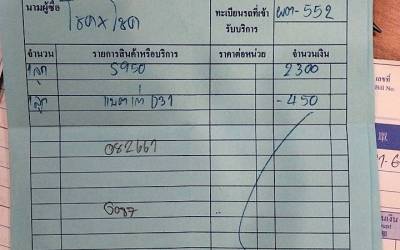 นามผู้ซื้อ โชค x โชค ทะเบียนรถที่เข้ารับบริการ ผต-552
จำนวน รายการสินค้าหรือบริการ ราคาต่อหน่วย จำนวนเงิน
1 ลูก S950 2300
1 ลูก แบตเก่า D31 -450
082661
0087
เลขที่
Bill No.